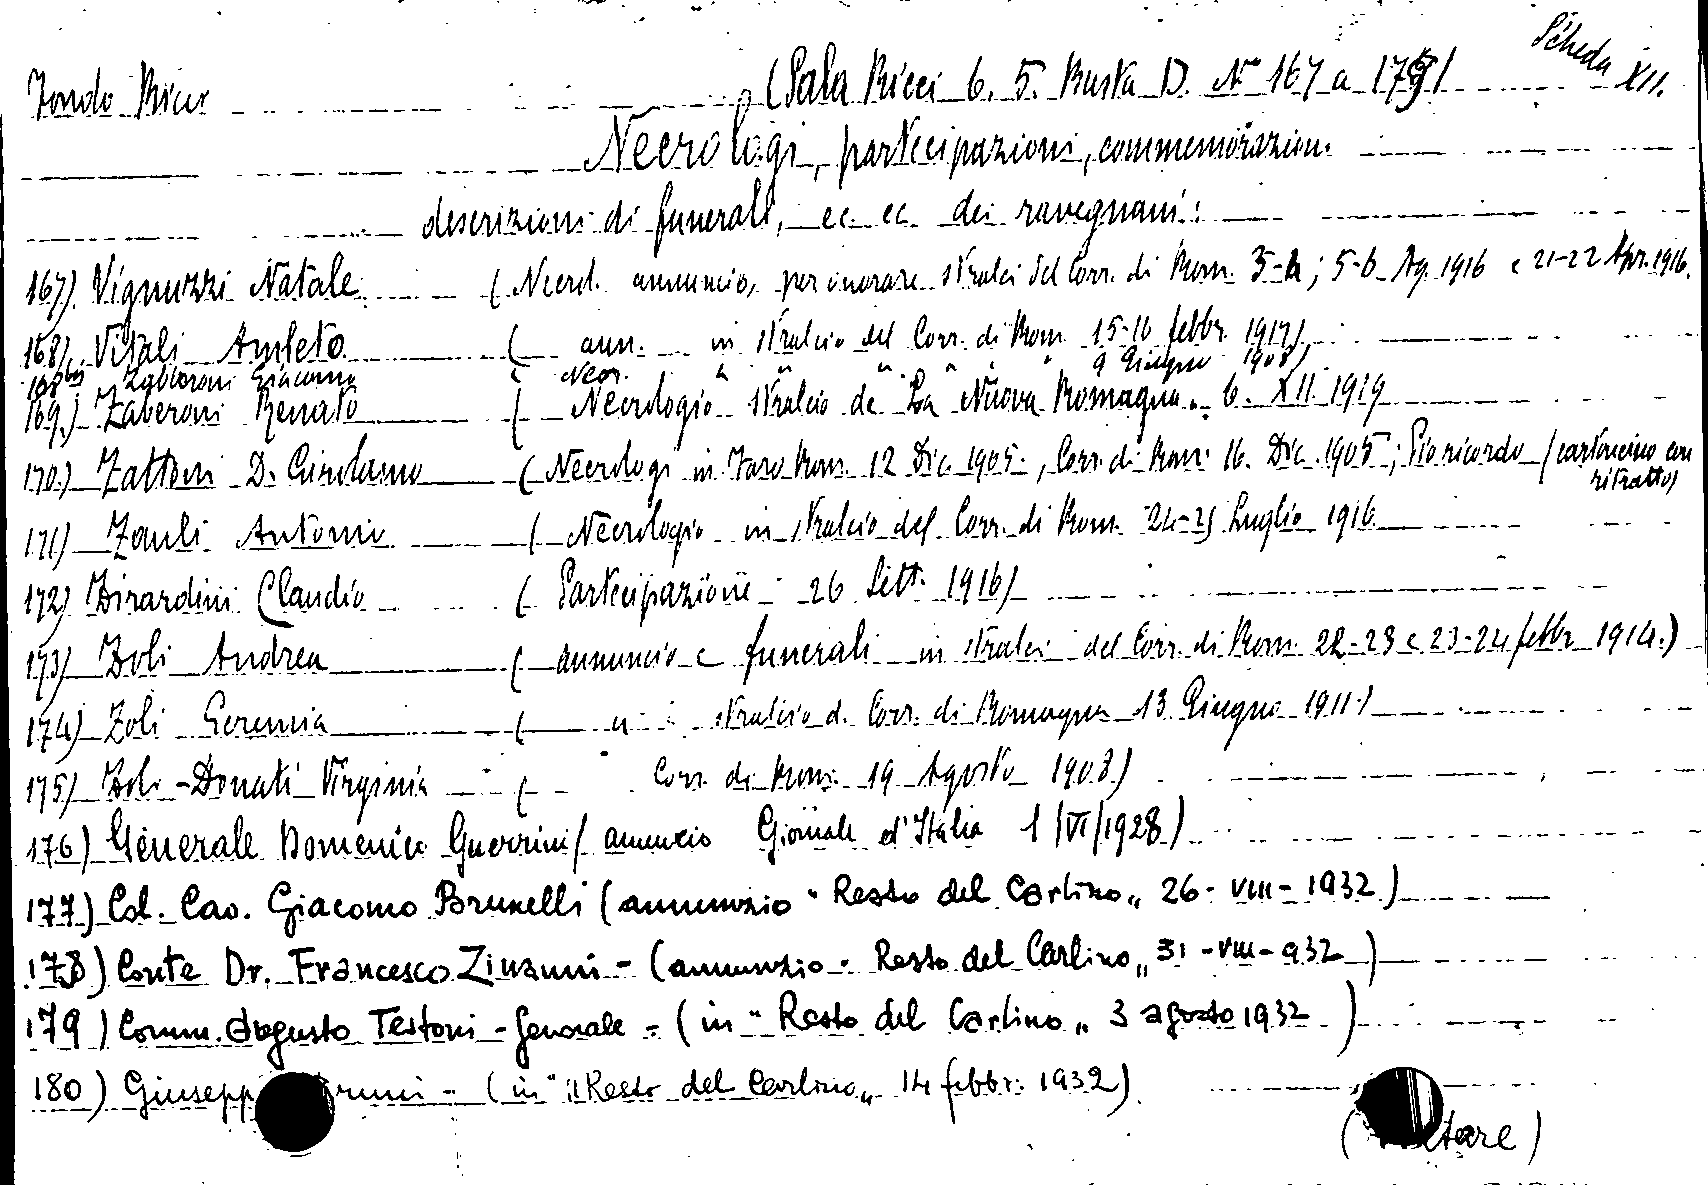 Scheda XII.
Fondo Ricci (Sala Ricci b. 5. Busta D. N° 167 a 175)
Necrologi, partecipazioni, commemorazioni
descrizioni di funerali, ec. ec. dei ravegnani:
167) Vignuzzi Natale (Necrol. annuncio, per onorare stralci del Corr. di Rom. 3-4; 5-6 Ag. 1916 e 21-22 Apr. 1916.
168) Vitali Amleto ( ann. in stralcio del Corr. di Rom. 15-16 febbr. 1917)
168bis Zaberoni Giacomo ( Necr. " " " " " 9 Giugno 1908)
169.) Zaberoni Renato ( Necrologio stralcio de "La Nuova Romagna" 6. XII. 1919
170.) Zattoni D. Girolamo (Necrologi in Faro Rom. 12 Dic. 1905., Corr. di Rom. 16. Dic. 1905; Pio ricordo (cartoncino con
ritratto)
171) Zauli Antonio ( Necrologio in stralcio del Corr. di Rom. 24-25 Luglio 1916
172) Zirardini Claudio ( Partecipazione 26 Sett. 1916)
173) Zoli Andrea ( annuncio e funerali in stralci del Corr. di Rom. 22-23 e 23-24 febbr. 1914.)
174) Zoli Geremia ( " stralcio d. Corr. di Romagna 13 Giugno 1911.)
175) Zoli-Donati Virginia ( Corr. di Rom. 19 Agosto 1908.)
176) Generale Domenico Guerrini (annuncio Giornale d'Italia 1/VI/1928)
177) Col. Cav. Giacomo Brunelli (annunzio "Resto del Carlino" 26-VIII-1932)
178) Conte Dr. Francesco Zinanni - (annunzio - Resto del Carlino" 31-VIII-932)
179) Comm. Augusto Testoni - Generale - (in "Resto del Carlino" 3 agosto 1932)
180) Giusepp - (in "il Resto del Carlino" 14 febbr. 1932)